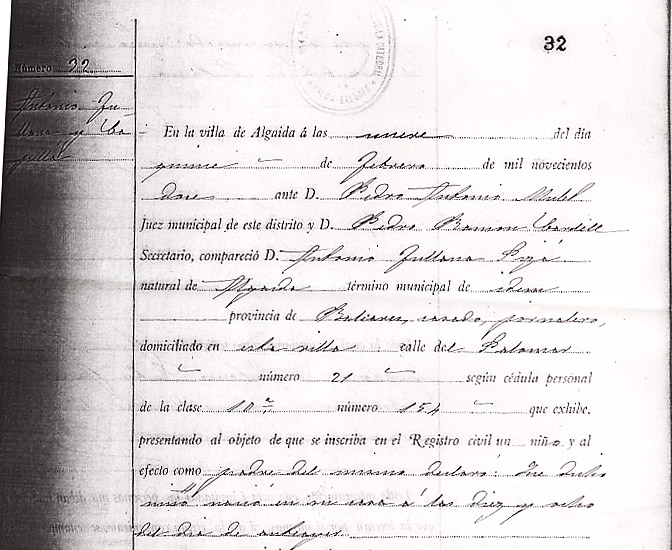 32
Número 32
Antonio Ju-
llana y
En la villa de Algaida á las nueve del día
quince de febrero de mil novecientos
doce ante D. Pedro Antonio Mulet
Juez municipal de este distrito y D. Pedro Ramon
Secretario, compareció D. Antonio Jullana
natural de Algaida término municipal de idem
provincia de Baleares, casado, jornalero,
domiciliado en esta villa calle del Palomar
número 21 según cédula personal
de la clase 10ª número 154 que exhibe,
presentando al objeto de que se inscriba en el Registro civil un niño y al
efecto como padre del mismo declaró: Que dicho
niño nació en su casa á las diez y ocho
del dia de anteayer